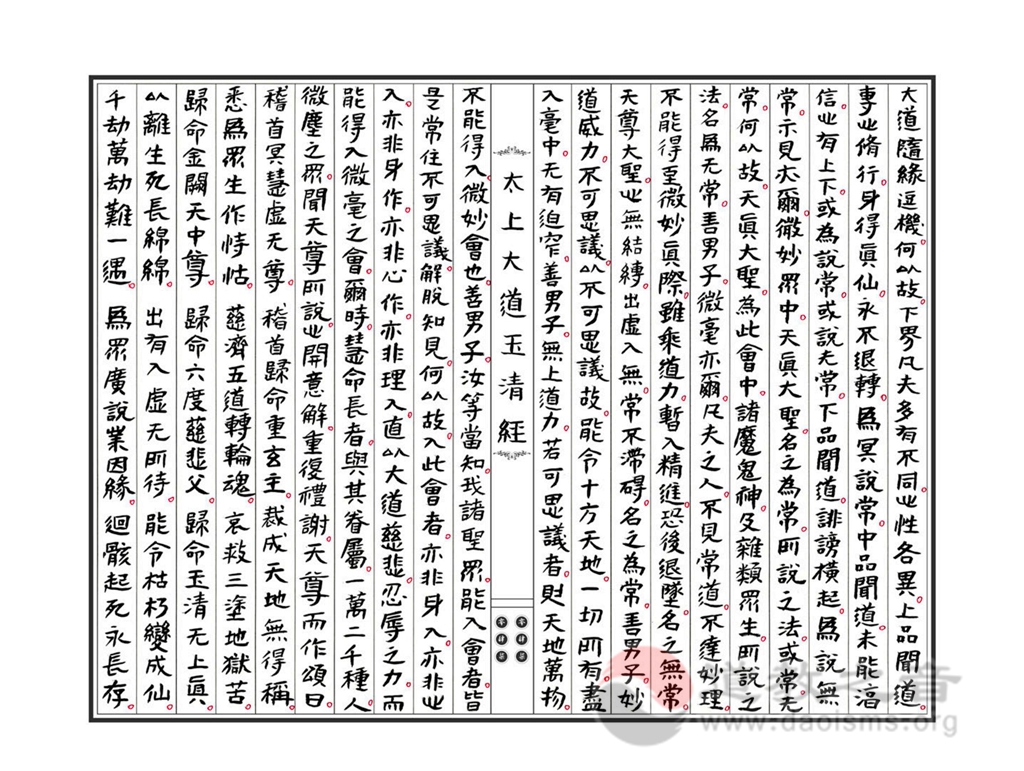 大道隨緣逗機何以故下界凡夫多有不同心性各異上品聞道
專心脩行身得真仙永不退轉為冥說常中品聞道未能洽
信心有上下或為說常或說无常下品聞道誹謗橫起為說無
常示見亦爾微妙眾中天真大聖名之為常所說之法或常无
常何以故天真大聖為此會中諸魔鬼神及雜類眾生所說之
法名為无常善男子微毫亦爾凡夫之人不見常道不達妙理
不能得至微妙真際雖乘道力暫入精進恐後退墜名之無常
天尊大聖心無結縛出虛入無常不滯碍名之為常善男子妙
道威力不可思議以不可思議故能令十方天地一切所有盡
入毫中无有迫窄善男子無上道力若可思議者則天地萬物
太上大道玉清經
不能得入微妙會也善男子汝等當知我諸聖眾能入會者皆
是常住不可思議解脫知見何以故入此會者亦非身入亦非心
入亦非身作亦非心作亦非理入直以大道慈悲忍辱之力而
能得入微毫之會爾時慧命長者與其眷屬一萬二千種人
微塵之眾聞天尊所說心開意解重復禮謝天尊而作頌曰
稽首冥慧虛无尊 稽首歸命重玄主 裁成天地無得稱
悉為眾生作恃怙 慈濟五道轉輪魂 哀救三塗地獄苦
歸命金闕天中尊 歸命六度慈悲父 歸命玉清无上真
以離生死長綿綿 出有入虛无所待 能令枯朽變成仙
千劫萬劫難一遇 為眾廣說業因緣 迴骸起死永長存
道教之音
www.daoisms.org